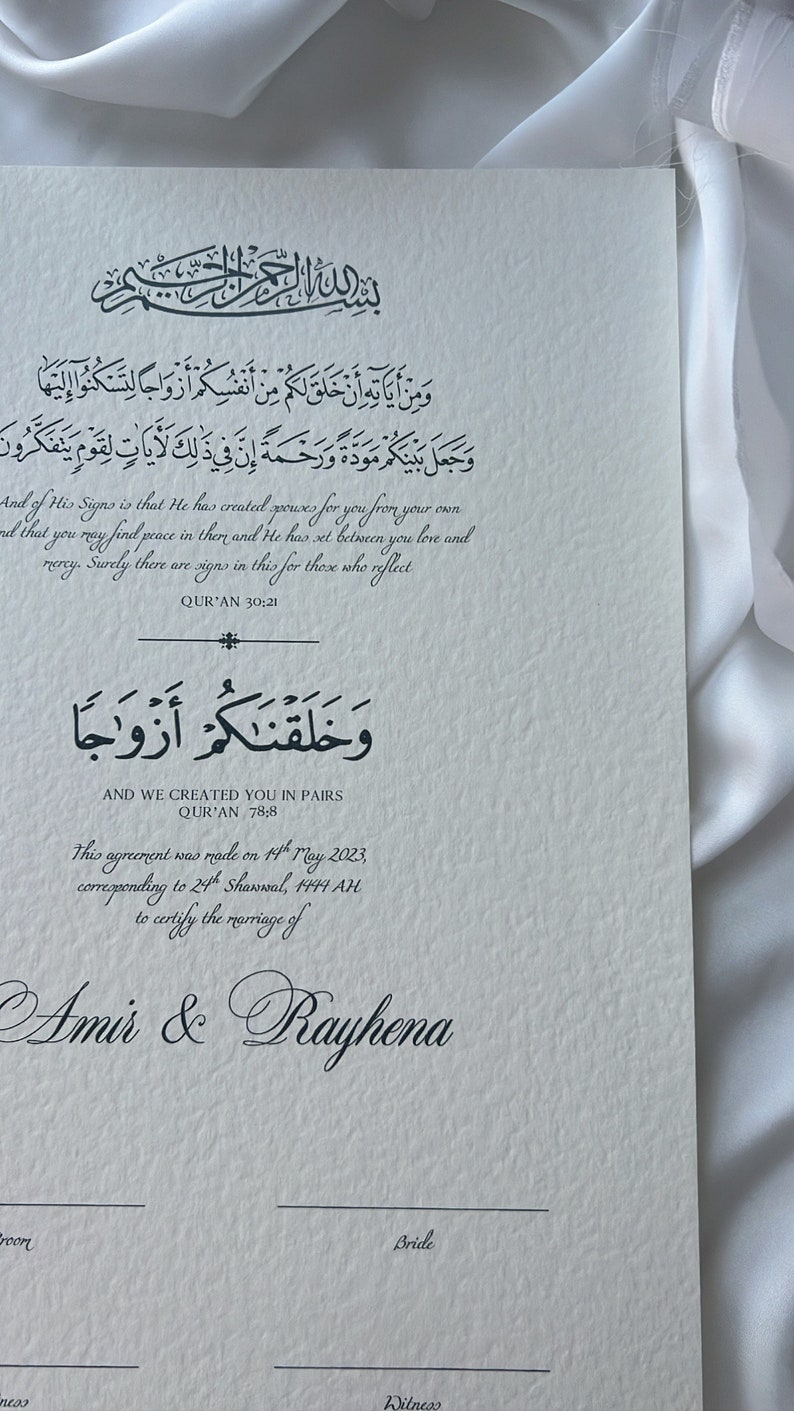 بسم الله الرحمن الرحيم
وَمِنْ أَيَاتِهِ أَنْ خَلَقَ لَكُمْ مِنْ أَنْفُسِكُمْ أَزْوَاجًا لِتَسْكُنُوا إِلَيْهَا
وَجَعَلَ بَيْنَكُمْ مَوَدَّةً وَرَحْمَةً إِنَّ فِي ذَٰلِكَ لَأَيَاتٍ لِقَوْمٍ يَتَفَكَّرُونَ
And of His Signs is that He has created spouses for you from your own
that you may find peace in them and He has set between you love and
mercy. Surely there are signs in this for those who reflect
QUR'AN 30:21
وَخَلَقْنَـٰكُمْ أَزْوَٰجًا
AND WE CREATED YOU IN PAIRS
QUR'AN 78:8
This agreement was made on 14th May 2023,
corresponding to 24th Shawwal, 1444 AH
to certify the marriage of
Amir & Rayhena
Bride
Witness